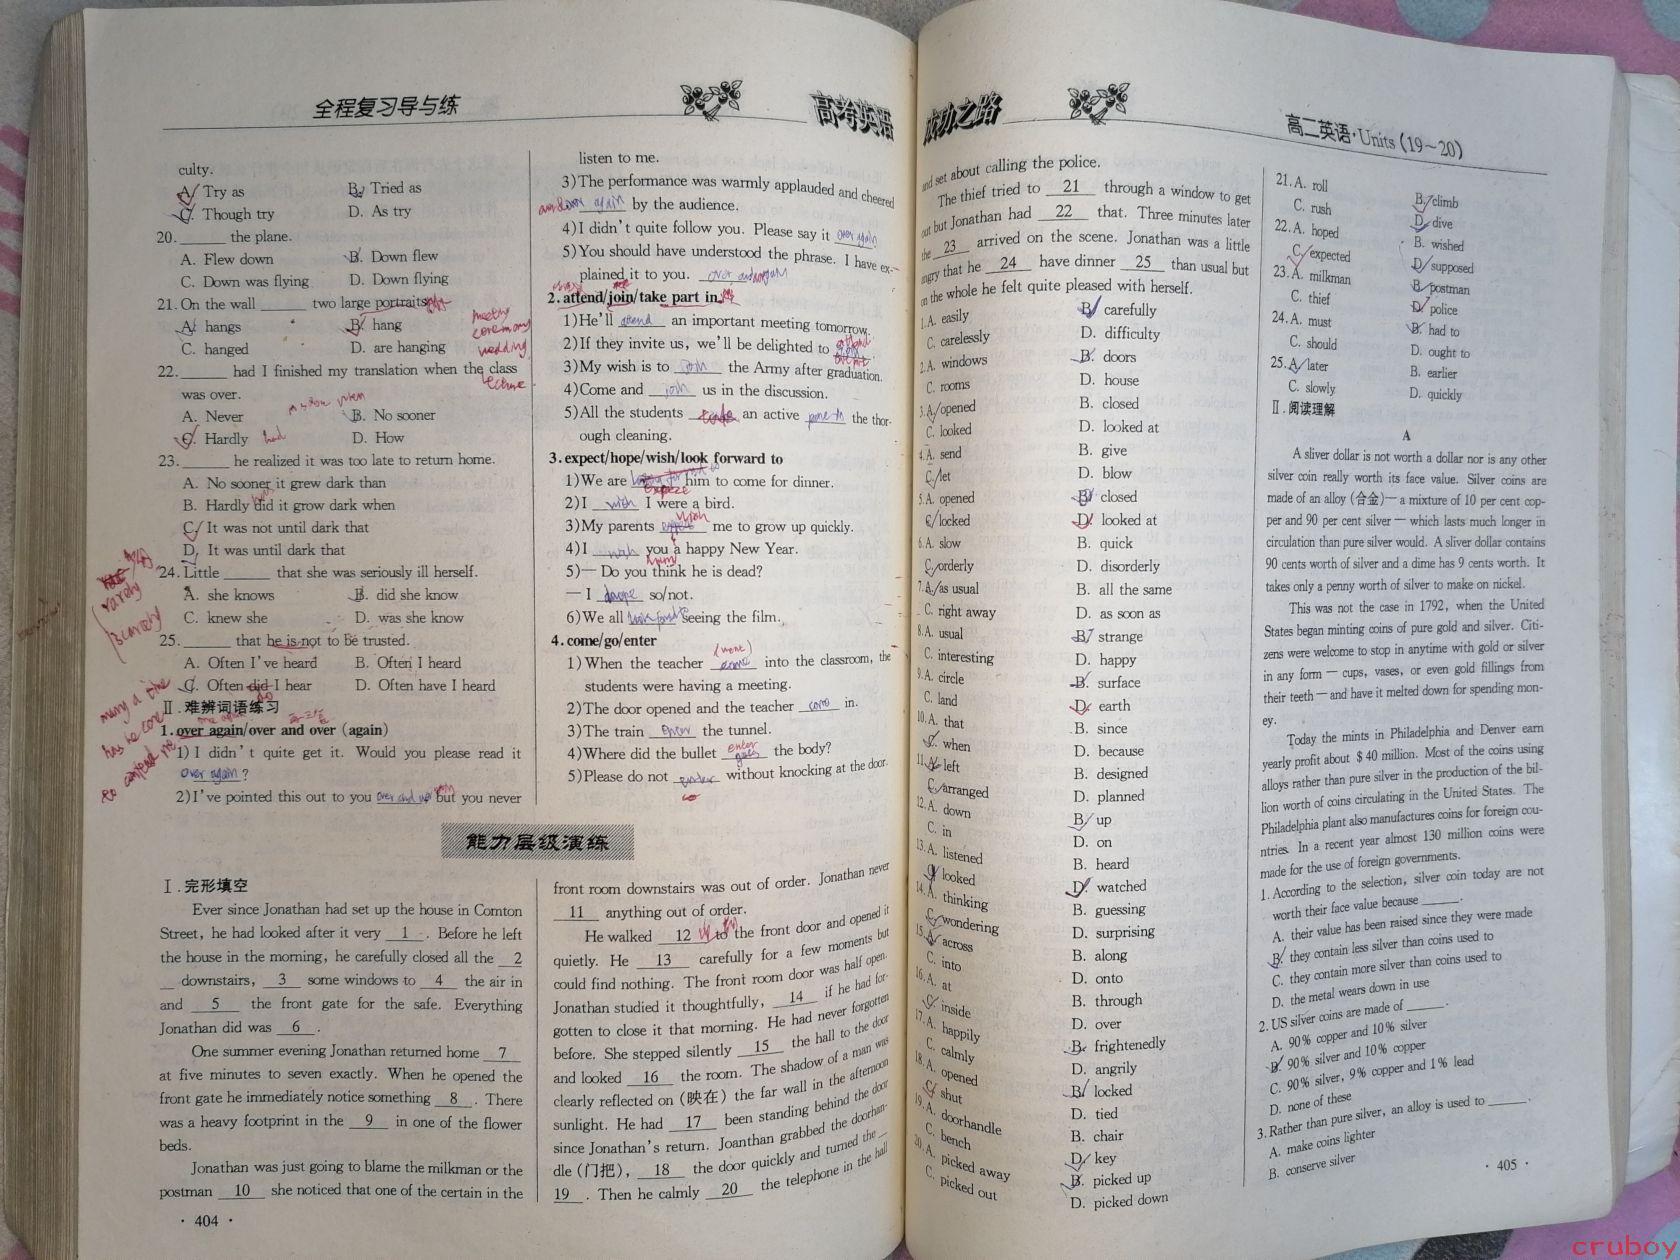 全程复习导与练
高考英语
culty.
A. Try as
B. Tried as
C. Though try
D. As try
20. ______ the plane.
A. Flew down
B. Down flew
C. Down was flying
D. Down flying
21. On the wall ______ two large portraits.
A. hangs
B. hang
C. hanged
D. are hanging
22. ______ had I finished my translation when the class
was over.
A. Never
B. No sooner
C. Hardly
D. How
23. ______ he realized it was too late to return home.
A. No sooner it grew dark than
B. Hardly did it grow dark when
C. It was not until dark that
D. It was until dark that
24. Little ______ that she was seriously ill herself.
A. she knows
B. did she know
C. knew she
D. was she know
25. ______ that he is not to be trusted.
A. Often I've heard
B. Often I heard
C. Often did I hear
D. Often have I heard
Ⅱ.难辨词语练习
1. over again/over and over (again)
1) I didn't quite get it. Would you please read it
over again ?
2) I've pointed this out to you over and over but you never
listen to me.
3) The performance was warmly applauded and cheered
again by the audience.
4) I didn't quite follow you. Please say it over again
5) You should have understood the phrase. I have ex-
plained it to you.
2. attend/join/take part in
1) He'll attend an important meeting tomorrow.
2) If they invite us, we'll be delighted to
3) My wish is to join the Army after graduation.
4) Come and join us in the discussion.
5) All the students take an active part in the thor-
ough cleaning.
3. expect/hope/wish/look forward to
1) We are him to come for dinner.
2) I wish I were a bird.
3) My parents wish me to grow up quickly.
4) I wish you a happy New Year.
5) — Do you think he is dead?
— I hope so/not.
6) We all seeing the film.
4. come/go/enter
1) When the teacher came into the classroom, the
students were having a meeting.
2) The door opened and the teacher came in.
3) The train enter the tunnel.
4) Where did the bullet enter the body?
5) Please do not without knocking at the door.
meeting
ceremony
wedding
lecture
rarely
scarcely
many a time
能力层级演练
Ⅰ.完形填空
Ever since Jonathan had set up the house in Comton
Street, he had looked after it very 1 . Before he left
the house in the morning, he carefully closed all the 2
downstairs, 3 some windows to 4 the air in
and 5 the front gate for the safe. Everything
Jonathan did was 6 .
One summer evening Jonathan returned home 7
at five minutes to seven exactly. When he opened the
front gate he immediately notice something 8 . There
was a heavy footprint in the 9 in one of the flower
beds.
Jonathan was just going to blame the milkman or the
postman 10 she noticed that one of the certain in the
front room downstairs was out of order. Jonathan never
11 anything out of order.
He walked 12 to the front door and opened it
quietly. He 13 carefully for a few moments but
could find nothing. The front room door was half open.
Jonathan studied it thoughtfully, 14 if he had for-
gotten to close it that morning. He had never forgotten
before. She stepped silently 15 the hall to the door
and looked 16 the room. The shadow of a man was
clearly reflected on (映在) the far wall in the afternoon
sunlight. He had 17 been standing behind the door
since Jonathan's return. Joanthan grabbed the doorhan-
dle (门把), 18 the door quickly and turned the
19 . Then he calmly 20 the telephone in the hall
· 404 ·
成功之路
高二英语·Units (19～20)
and set about calling the police.
The thief tried to 21 through a window to get
out but Jonathan had 22 that. Three minutes later
the 23 arrived on the scene. Jonathan was a little
angry that he 24 have dinner 25 than usual but
on the whole he felt quite pleased with herself.
1. A. easily
B. carefully
C. carelessly
D. difficulty
2. A. windows
B. doors
C. rooms
D. house
3. A. opened
B. closed
C. looked
D. looked at
4. A. send
B. give
C. let
D. blow
5. A. opened
B. closed
C. locked
D. looked at
6. A. slow
B. quick
C. orderly
D. disorderly
7. A. as usual
B. all the same
C. right away
D. as soon as
8. A. usual
B. strange
C. interesting
D. happy
9. A. circle
B. surface
C. land
D. earth
10. A. that
B. since
C. when
D. because
11. A. left
B. designed
C. arranged
D. planned
12. A. down
B. up
C. in
D. on
13. A. listened
B. heard
C. looked
D. watched
14. A. thinking
B. guessing
C. wondering
D. surprising
15. A. across
B. along
C. into
D. onto
16. A. at
B. through
C. inside
D. over
17. A. happily
B. frightenedly
C. calmly
D. angrily
18. A. opened
B. locked
C. shut
D. tied
19. A. doorhandle
B. chair
C. bench
D. key
20. A. picked away
B. picked up
C. picked out
D. picked down
21. A. roll
B. climb
C. rush
D. dive
22. A. hoped
B. wished
C. expected
D. supposed
23. A. milkman
B. postman
C. thief
D. police
24. A. must
B. had to
C. should
D. ought to
25. A. later
B. earlier
C. slowly
D. quickly
Ⅱ.阅读理解
A
A sliver dollar is not worth a dollar nor is any other
silver coin really worth its face value. Silver coins are
made of an alloy (合金)— a mixture of 10 per cent cop-
per and 90 per cent silver — which lasts much longer in
circulation than pure silver would. A sliver dollar contains
90 cents worth of silver and a dime has 9 cents worth. It
takes only a penny worth of silver to make on nickel.
This was not the case in 1792, when the United
States began minting coins of pure gold and silver. Citi-
zens were welcome to stop in anytime with gold or silver
in any form — cups, vases, or even gold fillings from
their teeth — and have it melted down for spending mon-
ey.
Today the mints in Philadelphia and Denver earn
yearly profit about $40 million. Most of the coins using
alloys rather than pure silver in the production of the bil-
lion worth of coins circulating in the United States. The
Philadelphia plant also manufactures coins for foreign cou-
ntries. In a recent year almost 130 million coins were
made for the use of foreign governments.
1. According to the selection, silver coin today are not
worth their face value because ______.
A. their value has been raised since they were made
B. they contain less silver than coins used to
C. they contain more silver than coins used to
D. the metal wears down in use
2. US silver coins are made of ______.
A. 90% copper and 10% silver
B. 90% silver and 10% copper
C. 90% silver, 9% copper and 1% lead
D. none of these
3. Rather than pure silver, an alloy is used to ______.
A. make coins lighter
B. conserve silver
· 405 ·
cruboy